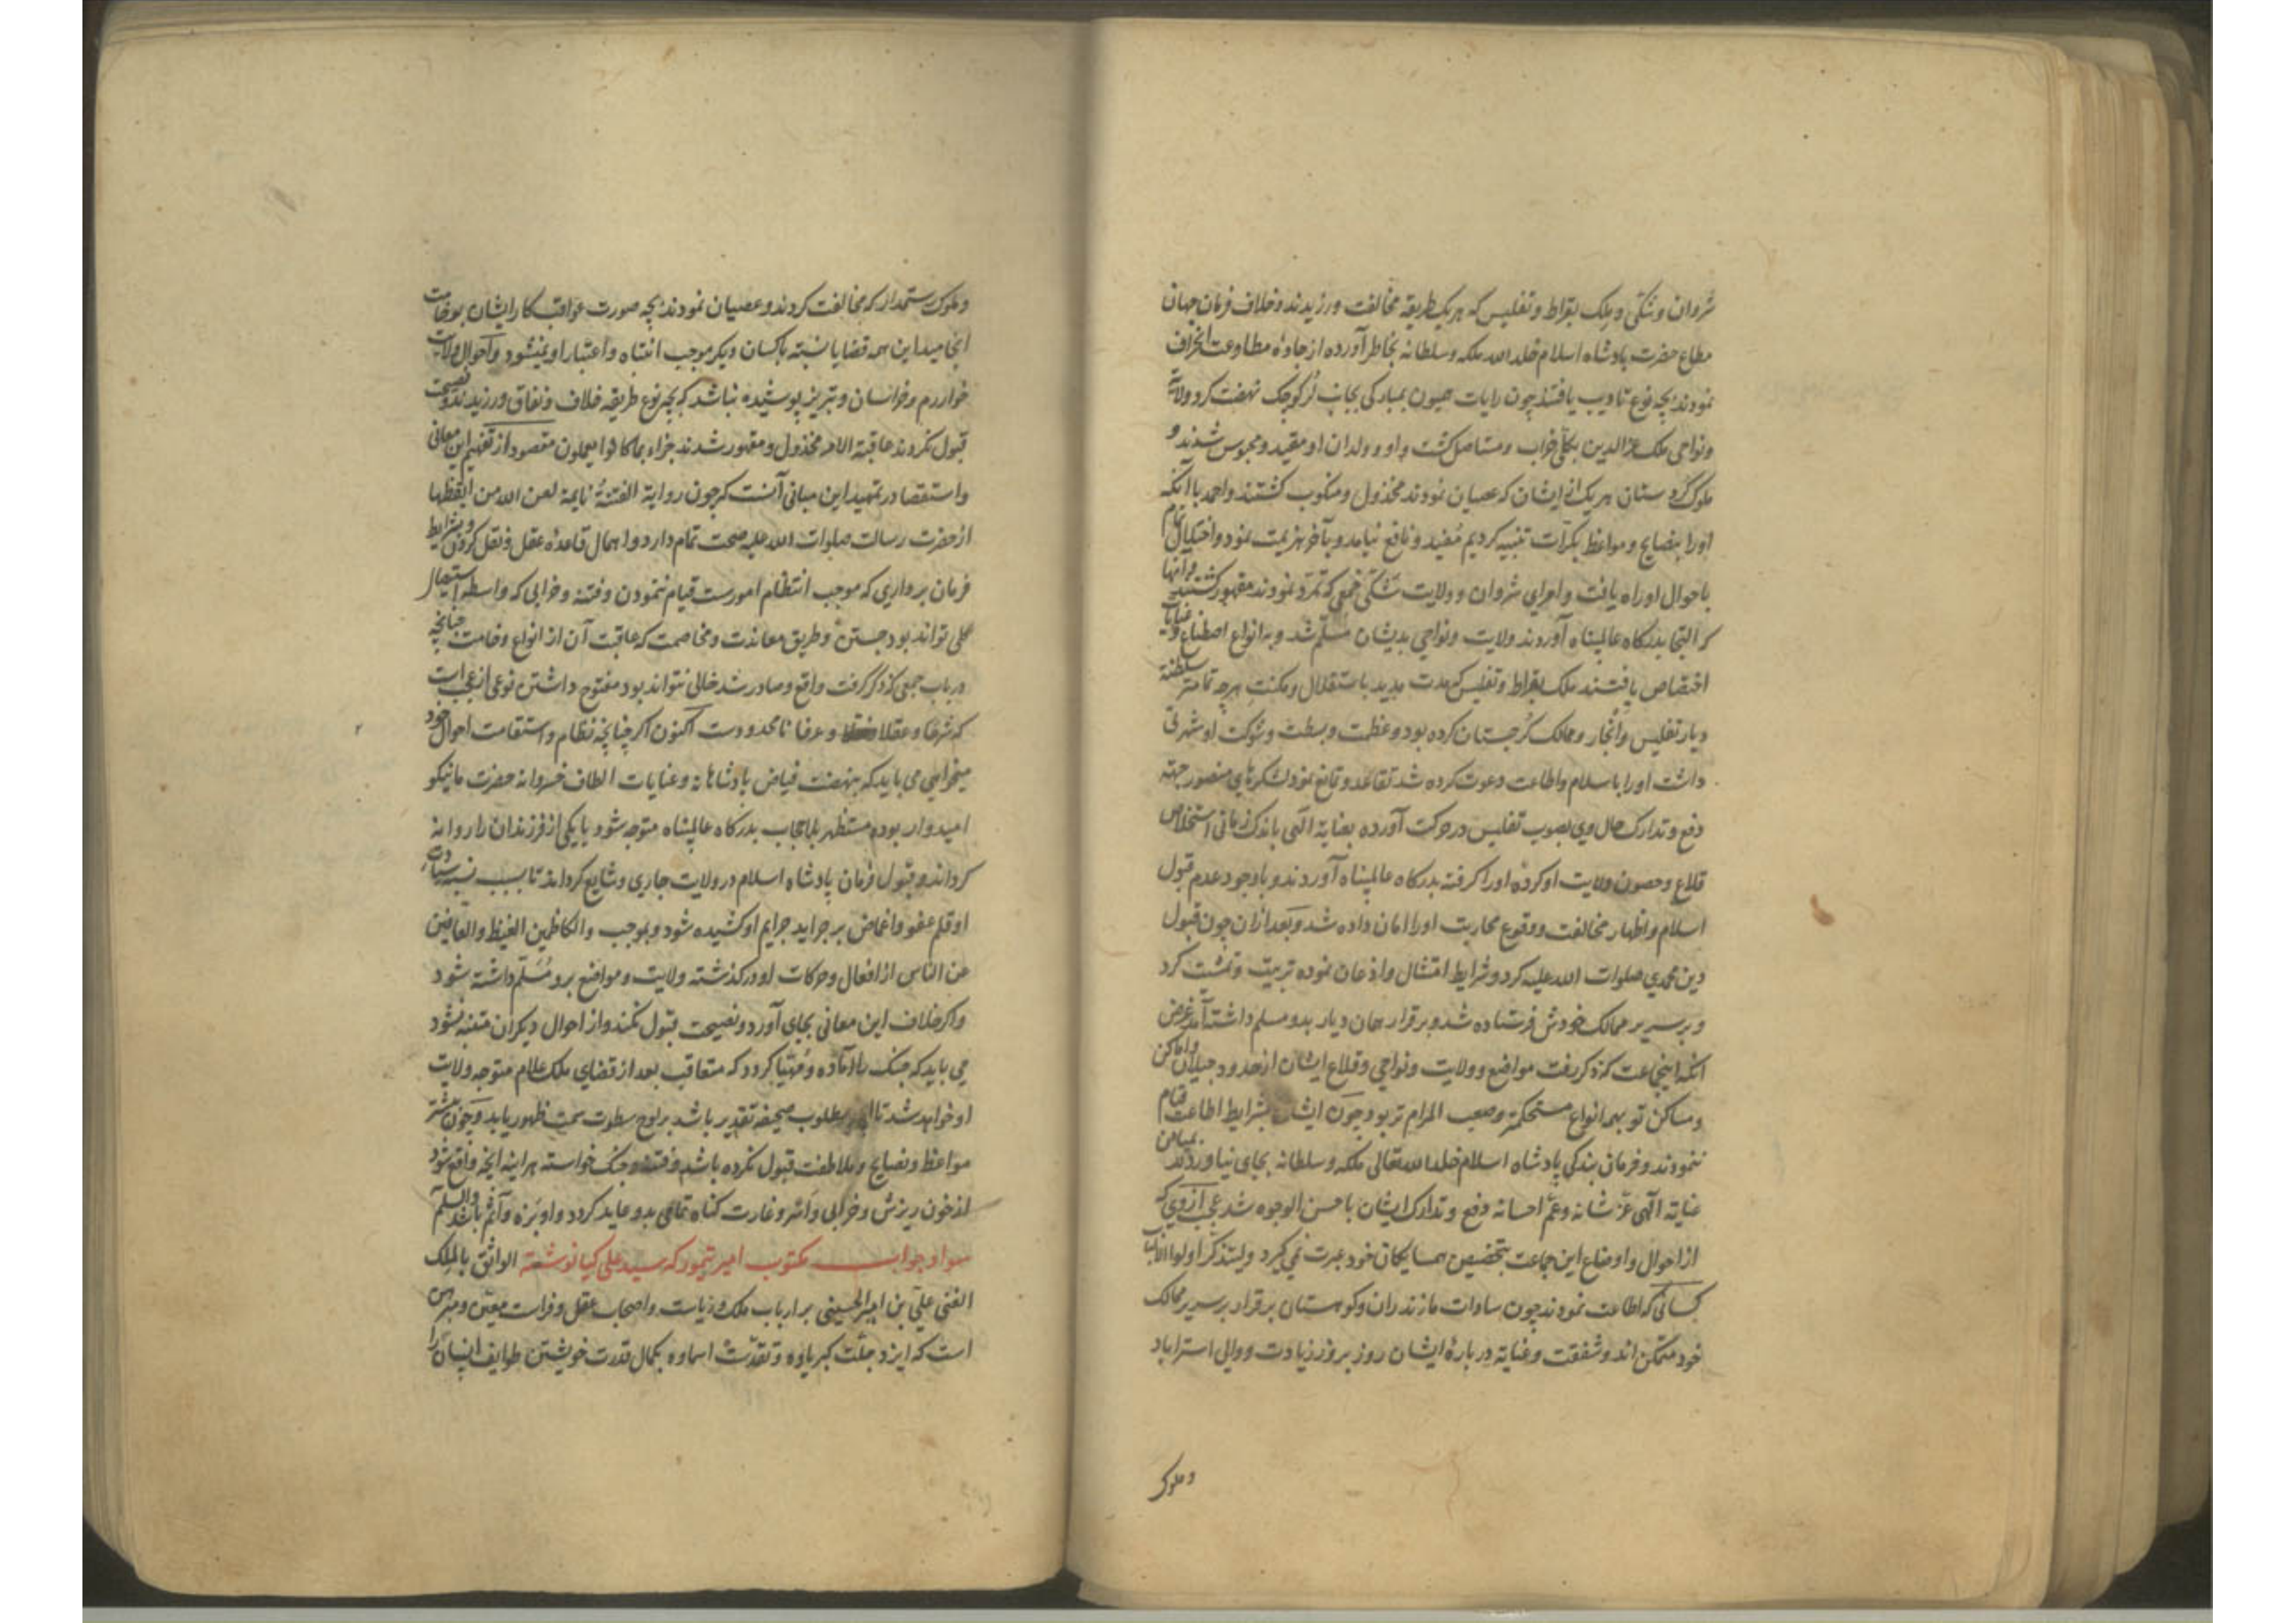 شروان و شکی و ملک بقراط و تفلیس که هر یک طریقه مخالفت ورزیدند و خلاف فرمان جهان
مطاع حضرت بادشاه اسلام خلد الله ملکه و سلطانه بخاطر آورده از جادهٔ مطاوعت انحراف
نمودند بچه نوع تادیب یافتند چون رایات همیون بمبارکی بجانب لر کوچک نهضت کرد ولایت
و نواحی ملک عزالدین بکلی خراب و مستاصل کشت و او و ولدان او مقید و محبوس شدند و
ملوک کردستان هر یک از ایشان که عصیان نمودند مخذول و منکوب کشتند و احمد با آنکه
اورا بنصایح و مواعظ بکرات تنبیه کردیم مفید و نافع نیامد و بآخر هزیمت نمود و اختلال تمام
باحوال او راه یافت و امرای شروان و ولایت شکی جمعی که تمرد نمودند مقهور کشتند
که التجا بدرکاه عالمپناه آوردند ولایت و نواحی بدیشان مسلّم شد و بانواع اصطناع و عنایات
اختصاص یافتند ملک بقراط و تفلیس که مدت مدید باستقلال و مکنت هرچه تمامتر سلطنة
دیار تفلیس و ممالک کرجستان کرده بود و عظمت و بسطت و شوکت او شهرتی
داشت اورا باسلام و اطاعت دعوت کرده شد تقاعد و تمانع نمود لشکرهای منصور جهة
دفع و تدارک حال وی بصوب تفلیس در حرکت آورده بعنایة الهی باندک زمانی استخلاص
قلاع و حصون ولایت او کرده اورا کرفته بدرکاه عالمپناه آوردند و باوجود عدم قبول
اسلام و اظهار مخالفت و وقوع محاربت اورا امان داده شد و بعد از ان چون قبول
دین محمدی صلوات الله علیه کرد و شرایط امتثال و اذعان نموده تربیت و تمشیت کرد
و بر سریر ممالک خودش فرستاده شد و برقرار همان دیار بدو مسلم داشته آمد غرض
آنکه اینجماعت که ذکر رفت مواضع و ولایت و نواحی و قلاع ایشان از حدود جیلان و اماکن
و مساکن تو بهمه انواع مستحکمتر و صعب المرام تر بود چون ایشان بشرایط اطاعت قیام
ننمودند و فرمان بندکی پادشاه اسلام خلد الله تعالی ملکه و سلطانه بجای نیاوردند بمیامن
عنایة الهی عز شانه و عمّ احسانه دفع و تدارک ایشان باحسن الوجوه شد عجب از وی که
از احوال و اوضاع این جماعت بتخصیص همسایکان خود عبرت نمی کیرد ولیتذکّر اولوا الالباب
کسانی که اطاعت نمودند چون سادات مازندران و کوهستان برقرار بر سریر ممالک
خود متمکن اند و شفقت و عنایة در بارهٔ ایشان روز بروز زیادت و والی استراباد
و ملوک
و ملوک رستمدار که مخالفت کردند و عصیان نمودند بچه صورت عواقب کار ایشان بوخامت
انجامید این همه قضایا نسبته باکسان دیکر موجب انتباه و اعتبار او نمیشود و احوال ولایت
خوارزم و خراسان و تبریز پوشیده نباشد که بچه نوع طریقه خلاف و نفاق ورزیدند و نصیحت
قبول نکردند عاقبة الامر مخذول و مقهور شدند جزاء بما کانوا یعملون مقصود از تفهیم این معانی
و استقصا در تمهید این مبانی آنست که چون روایة الفتنةُ نایمة لعن الله من ایقظها
از حضرت رسالت صلوات الله علیه صحت تمام دارد و اهمال قاعدهٔ عقل و نقل کردن و بشرایط
فرمان برداری که موجب انتظام امورست قیام ننمودن و فتنه و خرابی که واسطه استیصال
کلی تواند بود جستن و طریق معاندت و مخاصمت که عاقبت آن از انواع وخامت چنانچه
در باب جمعی که ذکر کرفت واقع و صادر شد خالی نتواند بود مفتوح داشتن نوعی از عجایب است
که شرعا و عقلا و عرفا نامحدودست اکنون اکر چنانچه نظام و استقامت احوال خود
میخواهی می باید که بنهضت فیاض پادشاهانه و عنایات الطاف خسروانه حضرت ما نیکو
امیدوار بوده مستظهر بلاحجاب بدرکاه عالمپناه متوجه شود یا یکی از فرزندان را روانه
کرداند و قبول فرمان پادشاه اسلام در ولایت جاری و شایع کرداند تا بسبب نسبه سیادت
او قلم عفو و اغماض بر جراید جرایم او کشیده شود و بموجب والکاظمین الغیظ والعافین
عن الناس از افعال و حرکات او درکذشته ولایت و مواضع برو مُسَلّم داشته شود
و اکر خلاف این معانی بجای آورد و نصیحت قبول نکند و از احوال دیکران متنبه نشود
می باید که جنک را آماده و مُهیّا کردد که متعاقب بعد از قضای ملک علام متوجه ولایت
او خواهد شد تا انچه مطلوب صحیفه تقدیر باشد بر لوح سطوت سمت ظهور یابد و چون بیشتر
مواعظ و نصایح و ملاطفت قبول نکرده باشد و فتنه و جنک خواسته هراینه انچه واقع شود
از خون ریزش و خرابی و اسر و غارت کناه تمامی بدو عاید کردد و او بزه و آثم باشد والسلم
سواد جواب مکتوب امیر تیمور که سید علی کیا نوشته الواثق بالملک
الغنی علی بن امیر الحسینی بر ارباب ملک و ریاست و اصحاب عقل و فراست معیّن و مبرهن
است که ایزد جلّت کبریاوه و تقدّست اسماوه بکمال قدرت خویشتن طوایف انسان را